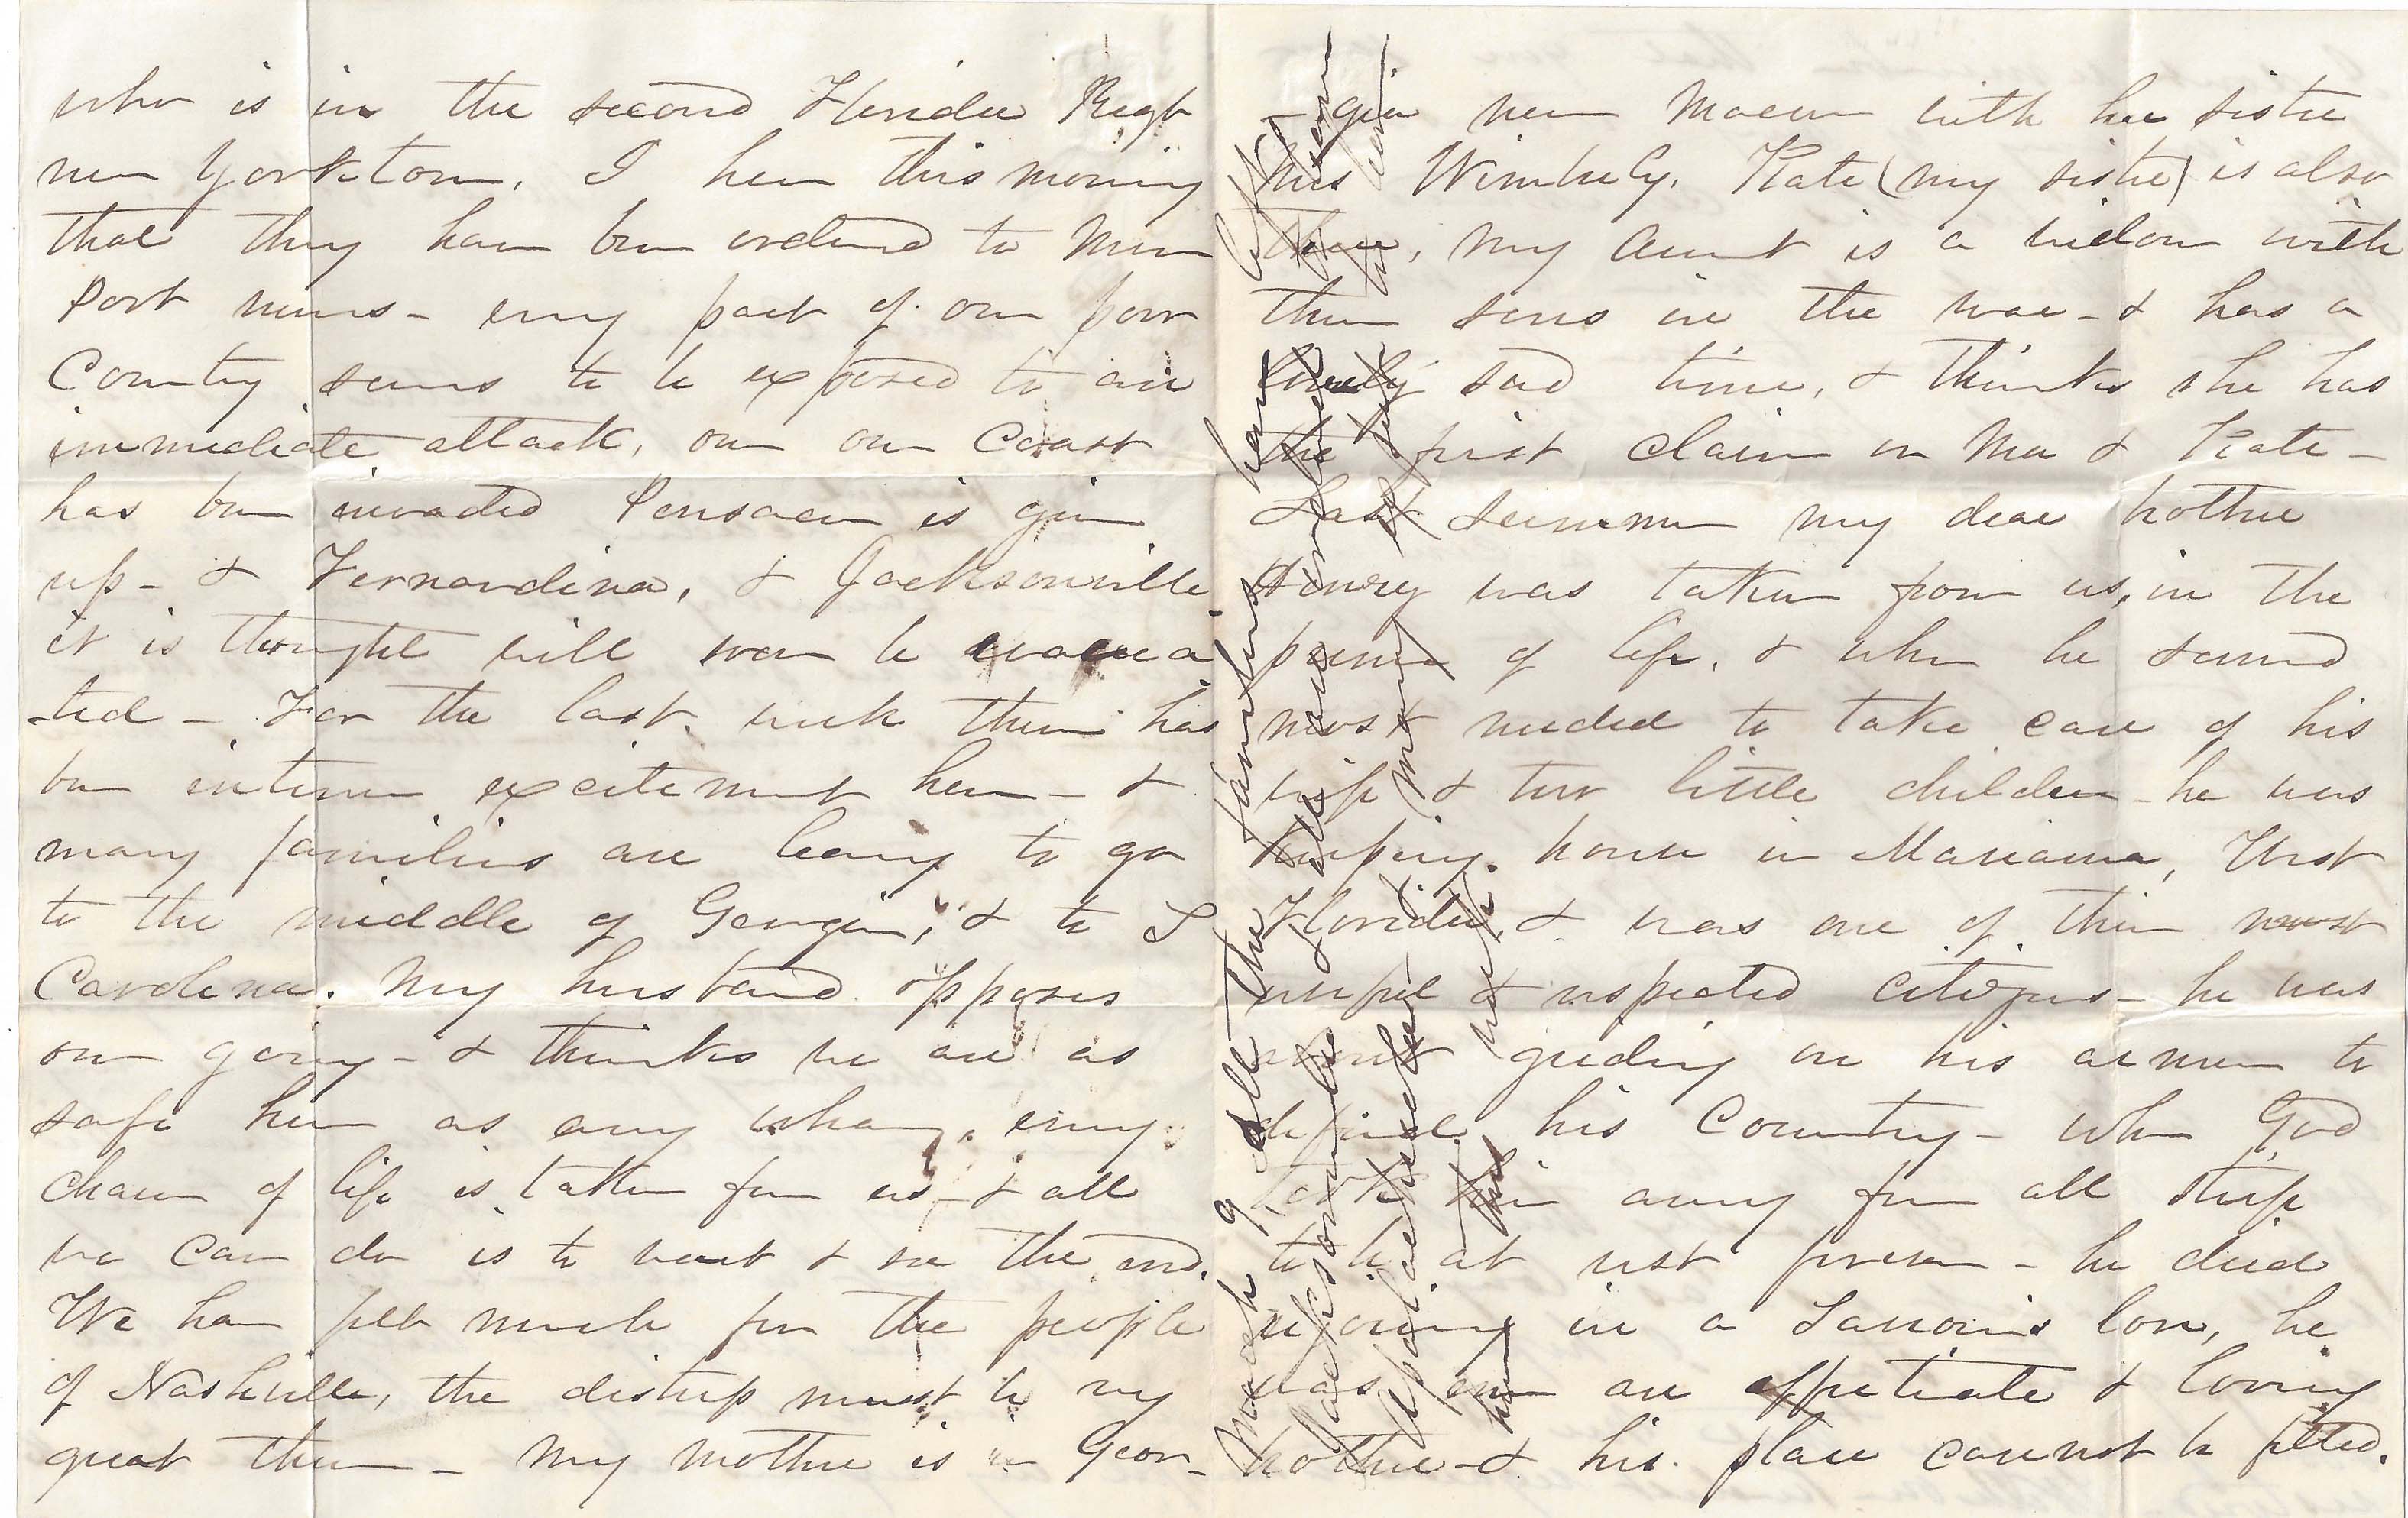 who is in the second Florida Regt
near Yorktown, I hear this morning
that they have been ordered to New
Port News - every part of our poor
Country seems to be exposed to an
immediate attack, our own Coast
has been invaded Pensacola is given
up - & Fernandina, & Jacksonville
it is thought will soon be evacua
-ted - For the last week there has
been intense excitement here - &
many families are leaving to go
to the middle of Georgia, & to S
Carolina. My husband opposes
our going - & thinks we are as
safe here as any where, every
charm of life is taken from us - & all
we can do is to wait & see the end.
We have felt much for the people
of Nashville, the distress must be very
great there - My mother is in Geor-
-gia near Macon with her sister
Mrs Wimberly. Kate (my sister) is also
there, my Aunt is a widow with
three sons in the war - & has a
lonely sad time, & thinks she has
the first claim on Ma & Kate -
Last summer my dear brother
Henry was taken from us, in the
prime of life, & when he seemed
most needed to take care of his
wife & two little children - he was
keeping house in Mariana, West
Florida, & was one of their most
useful & respected citizens - he was
about girding on his armor to
defend his Country - when God
took him away from all strife
to be at rest forever - he died
rejoicing in a Saviour's love, he
was ever an affectionate & loving
brother - & his place cannot be filled.
March 9 All the families have left
Jacksonville &